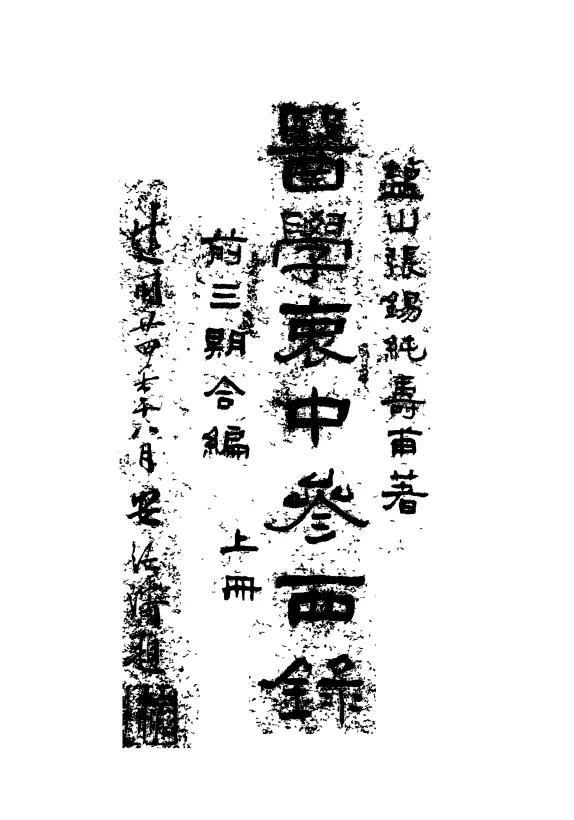 鹽山張錫純壽甫著
醫學衷中參西錄
前三期合編
上冊
民國廿四年八月安次
題